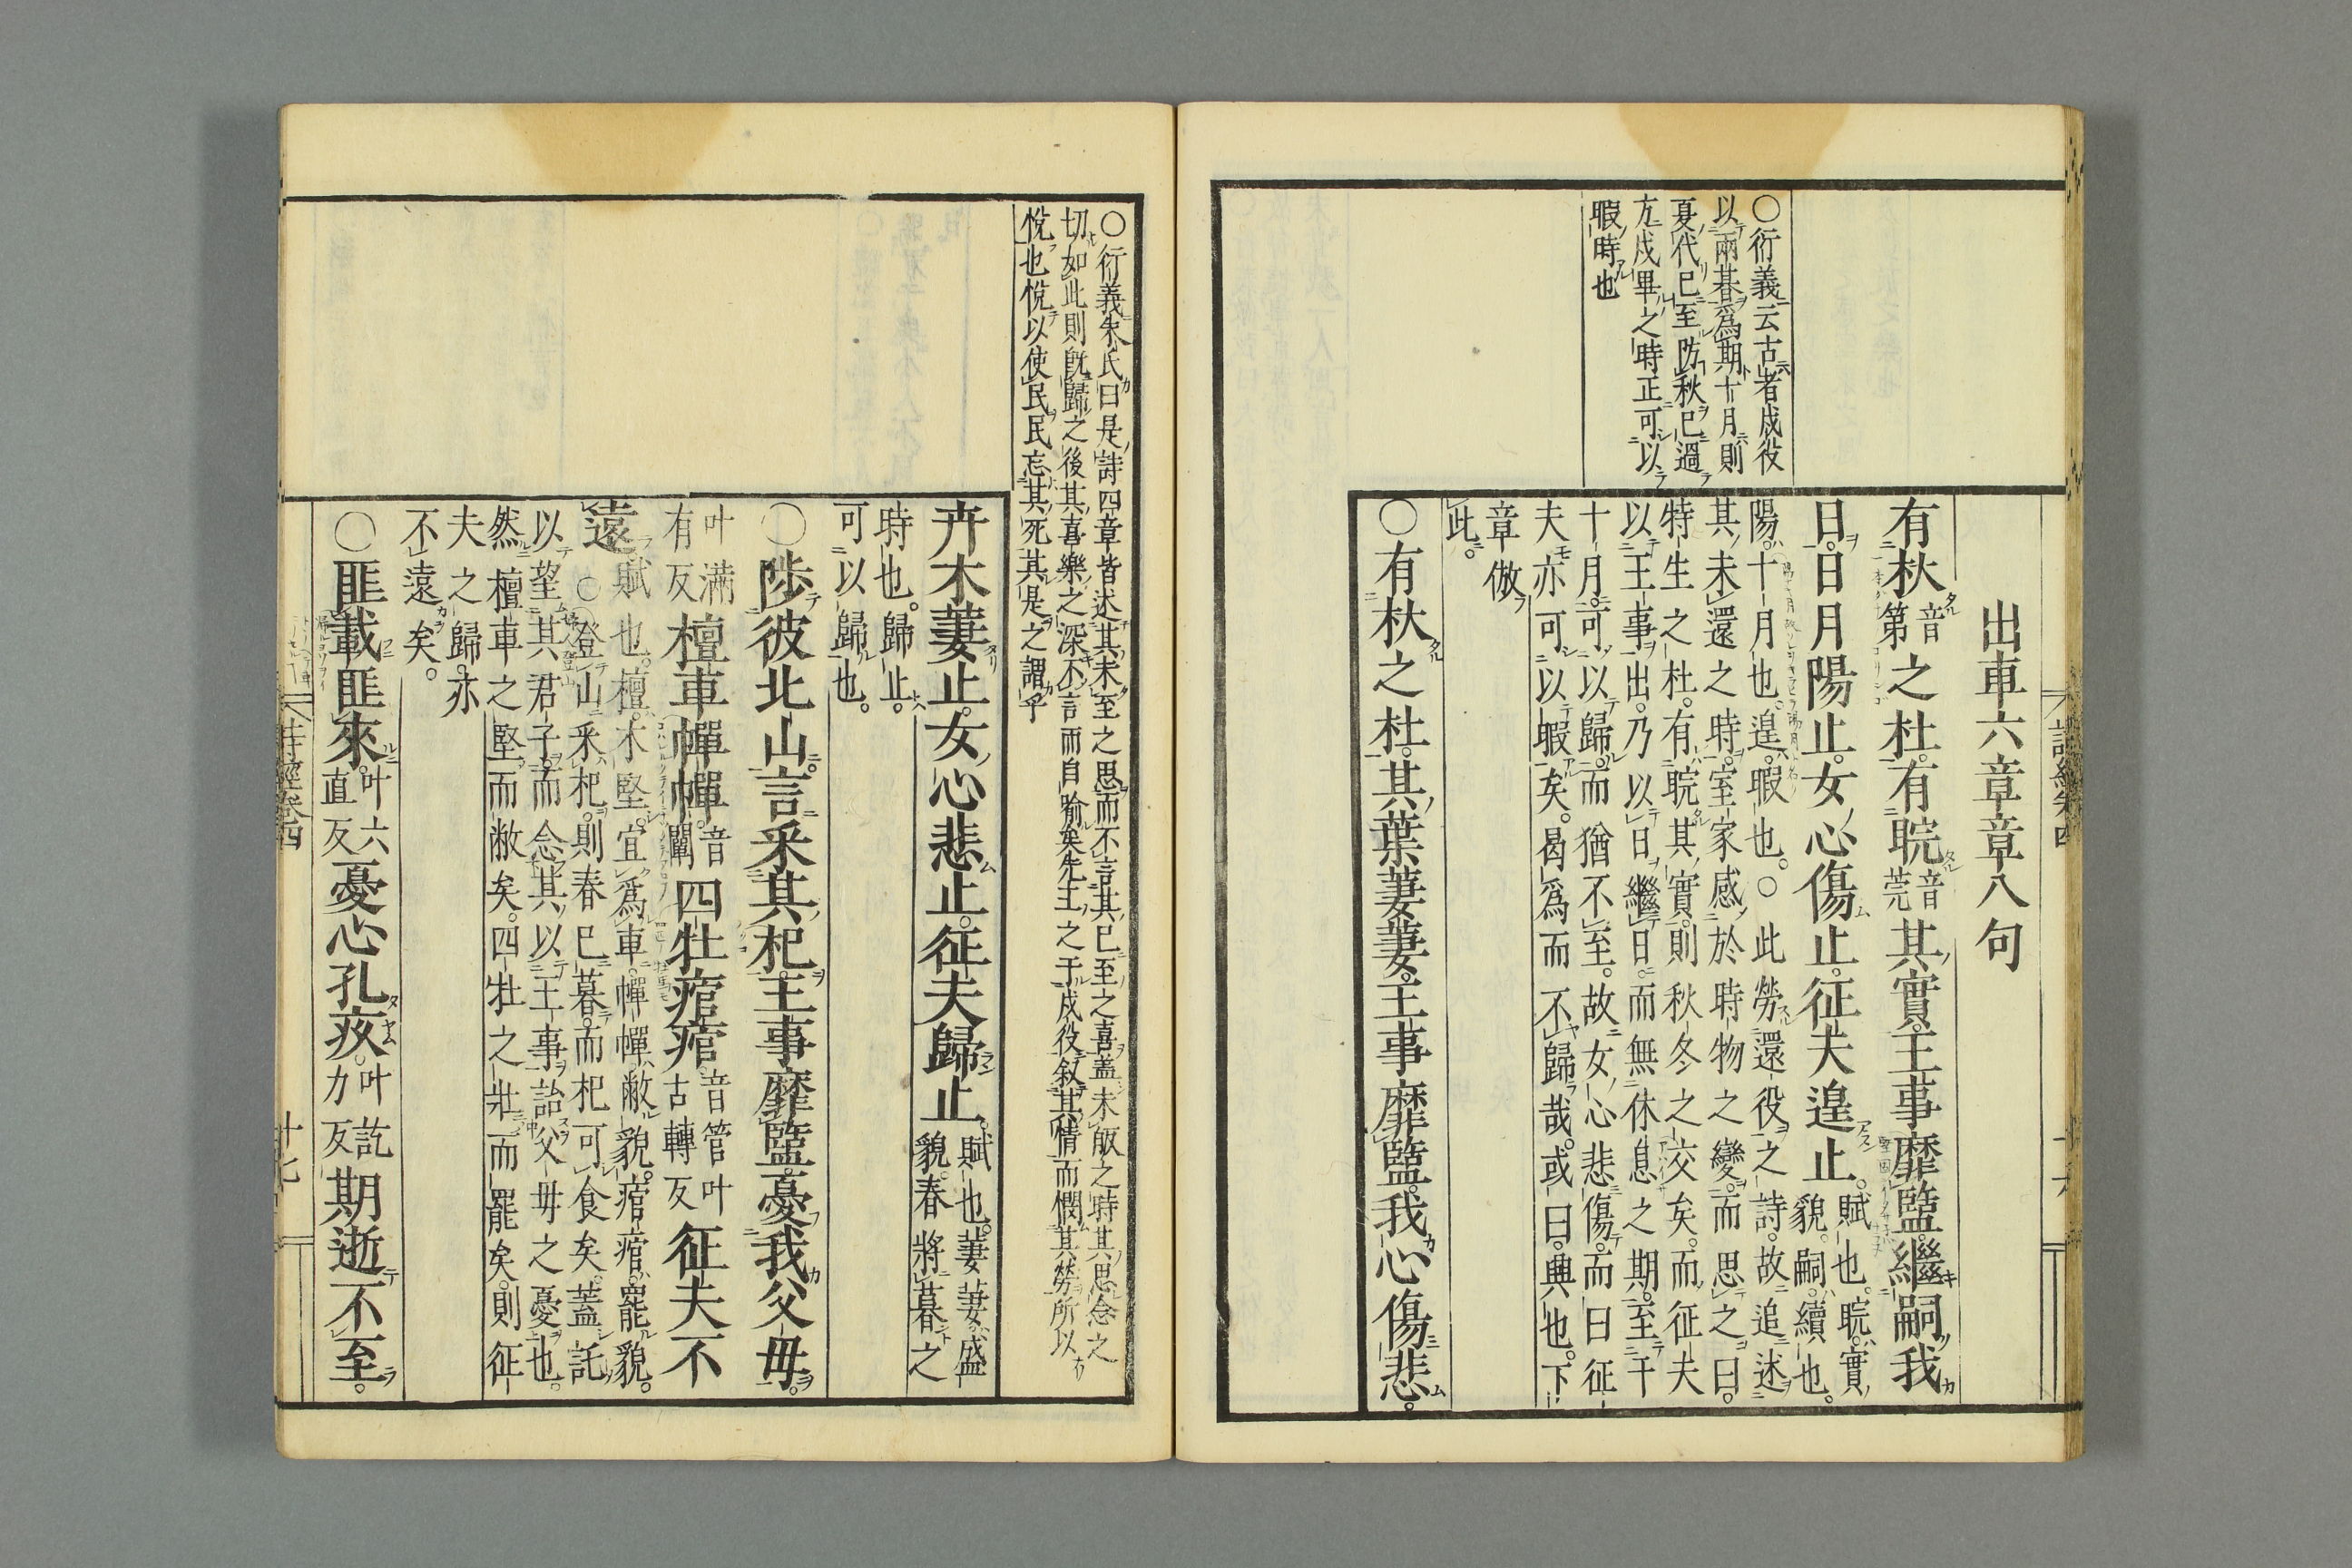 ○衍義云古者戍役
以兩朞爲期十月則
夏代已至防秋已過
方戍畢之時正可以
暇時也
出車六章章八句
有杕音第之杜。有睆音莞其實。王事靡盬。繼嗣我
日。日月陽止。女心傷止。征夫遑止。賦也。睆。實貌。嗣。續也。
陽。十月也。遑。暇也。○此勞還役之詩。故追述
其未還之時。室家感於時物之變。而思之曰。
特生之杜。有睆其實。則秋冬之交矣。而征夫
以王事出。乃以日繼日。而無休息之期。至于
十月。可以歸。而猶不至。故女心悲傷。而曰征
夫亦可以暇矣。曷爲而不歸哉。或曰。興也。下
章倣
此。
○有杕之杜。其葉萋萋。王事靡盬。我心傷悲。
○衍義朱氏曰是詩四章皆述其未至之思而不言其已至之喜蓋未皈之時其思念之
切如此則旣歸之後其喜樂之深不言而自喻矣先王之于戍役敍其情而憫其勞所以
悅也悅以使民民忘其死其是之謂乎
卉木萋止。女心悲止。征夫歸止。賦也。萋萋。盛貌。春將暮之
時也。歸止。
可以歸也。
○陟彼北山。言采其杞。王事靡盬。憂我父毋。
叶滿有反檀車幝幝音闡四牡痯痯。音管叶古轉反征夫不
遠賦也。檀。木堅。宜爲車。幝幝。敝貌。痯痯。罷貌。
○登山采杞。則春已暮。而杞可食矣。蓋託
以望其君子。而念其以王事詒父毋之憂也。
然檀車之堅而敝矣。四牡之壯而罷矣。則征
夫之歸。亦
不遠矣。
○匪載匪來。叶六直反憂心孔疚。叶訖力反期逝不至。
詩經卷四
十七